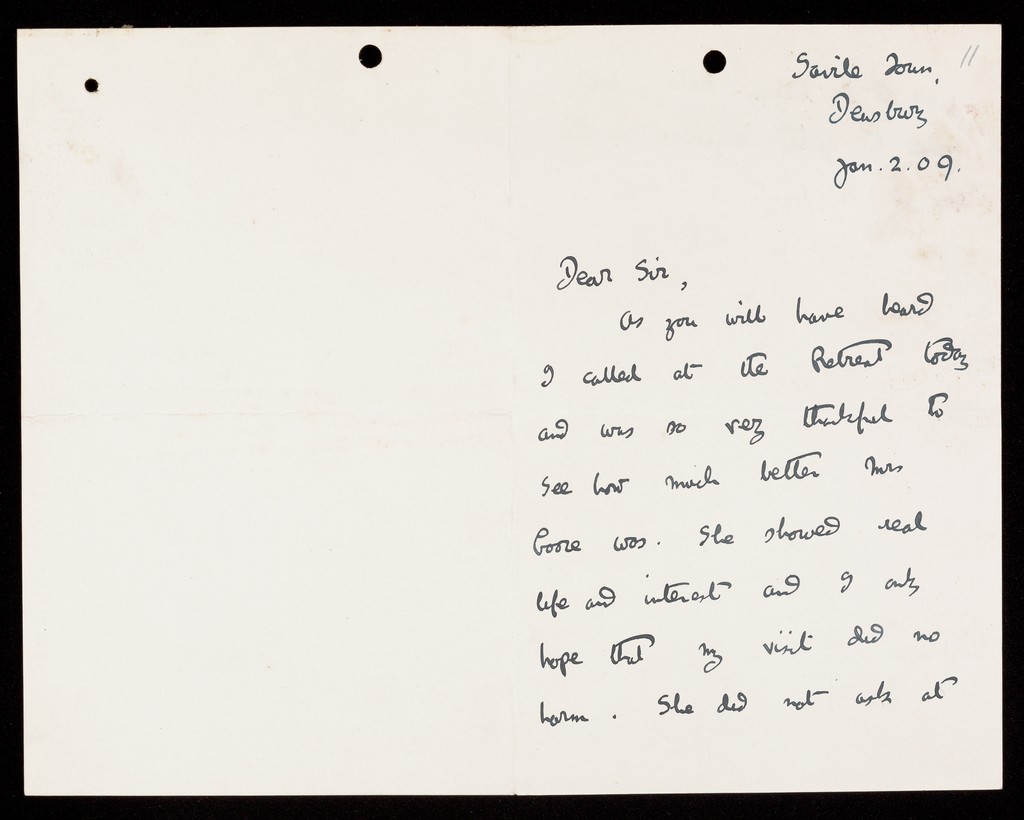 11
Savile Town,
Dewsbury
Jan. 2. 09.
Dear Sir,
As you will have heard
I called at the Retreat today
and was so very thankful to
see how much better Mrs
was. She showed real
life and interest and I only
hope that my visit did no
harm. She did not ask at